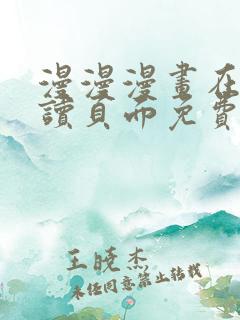 漫漫漫畫在
讀頁面免費
王曉杰
未经同意禁止转载